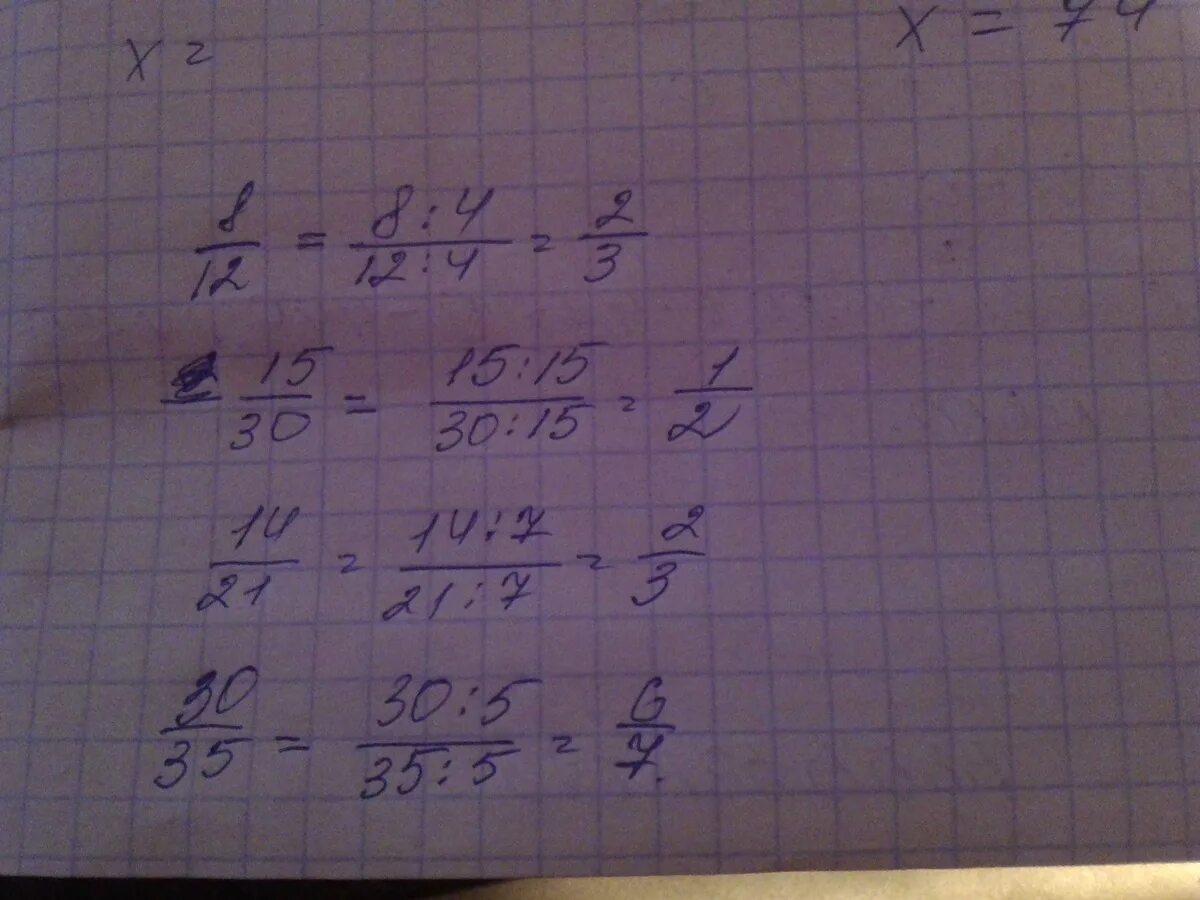 x =
x = 74
8/12 = 8:4/12:4 = 2/3
15/30 = 15:15/30:15 = 1/2
14/21 = 14:7/21:7 = 2/3
30/35 = 30:5/35:5 = 6/7